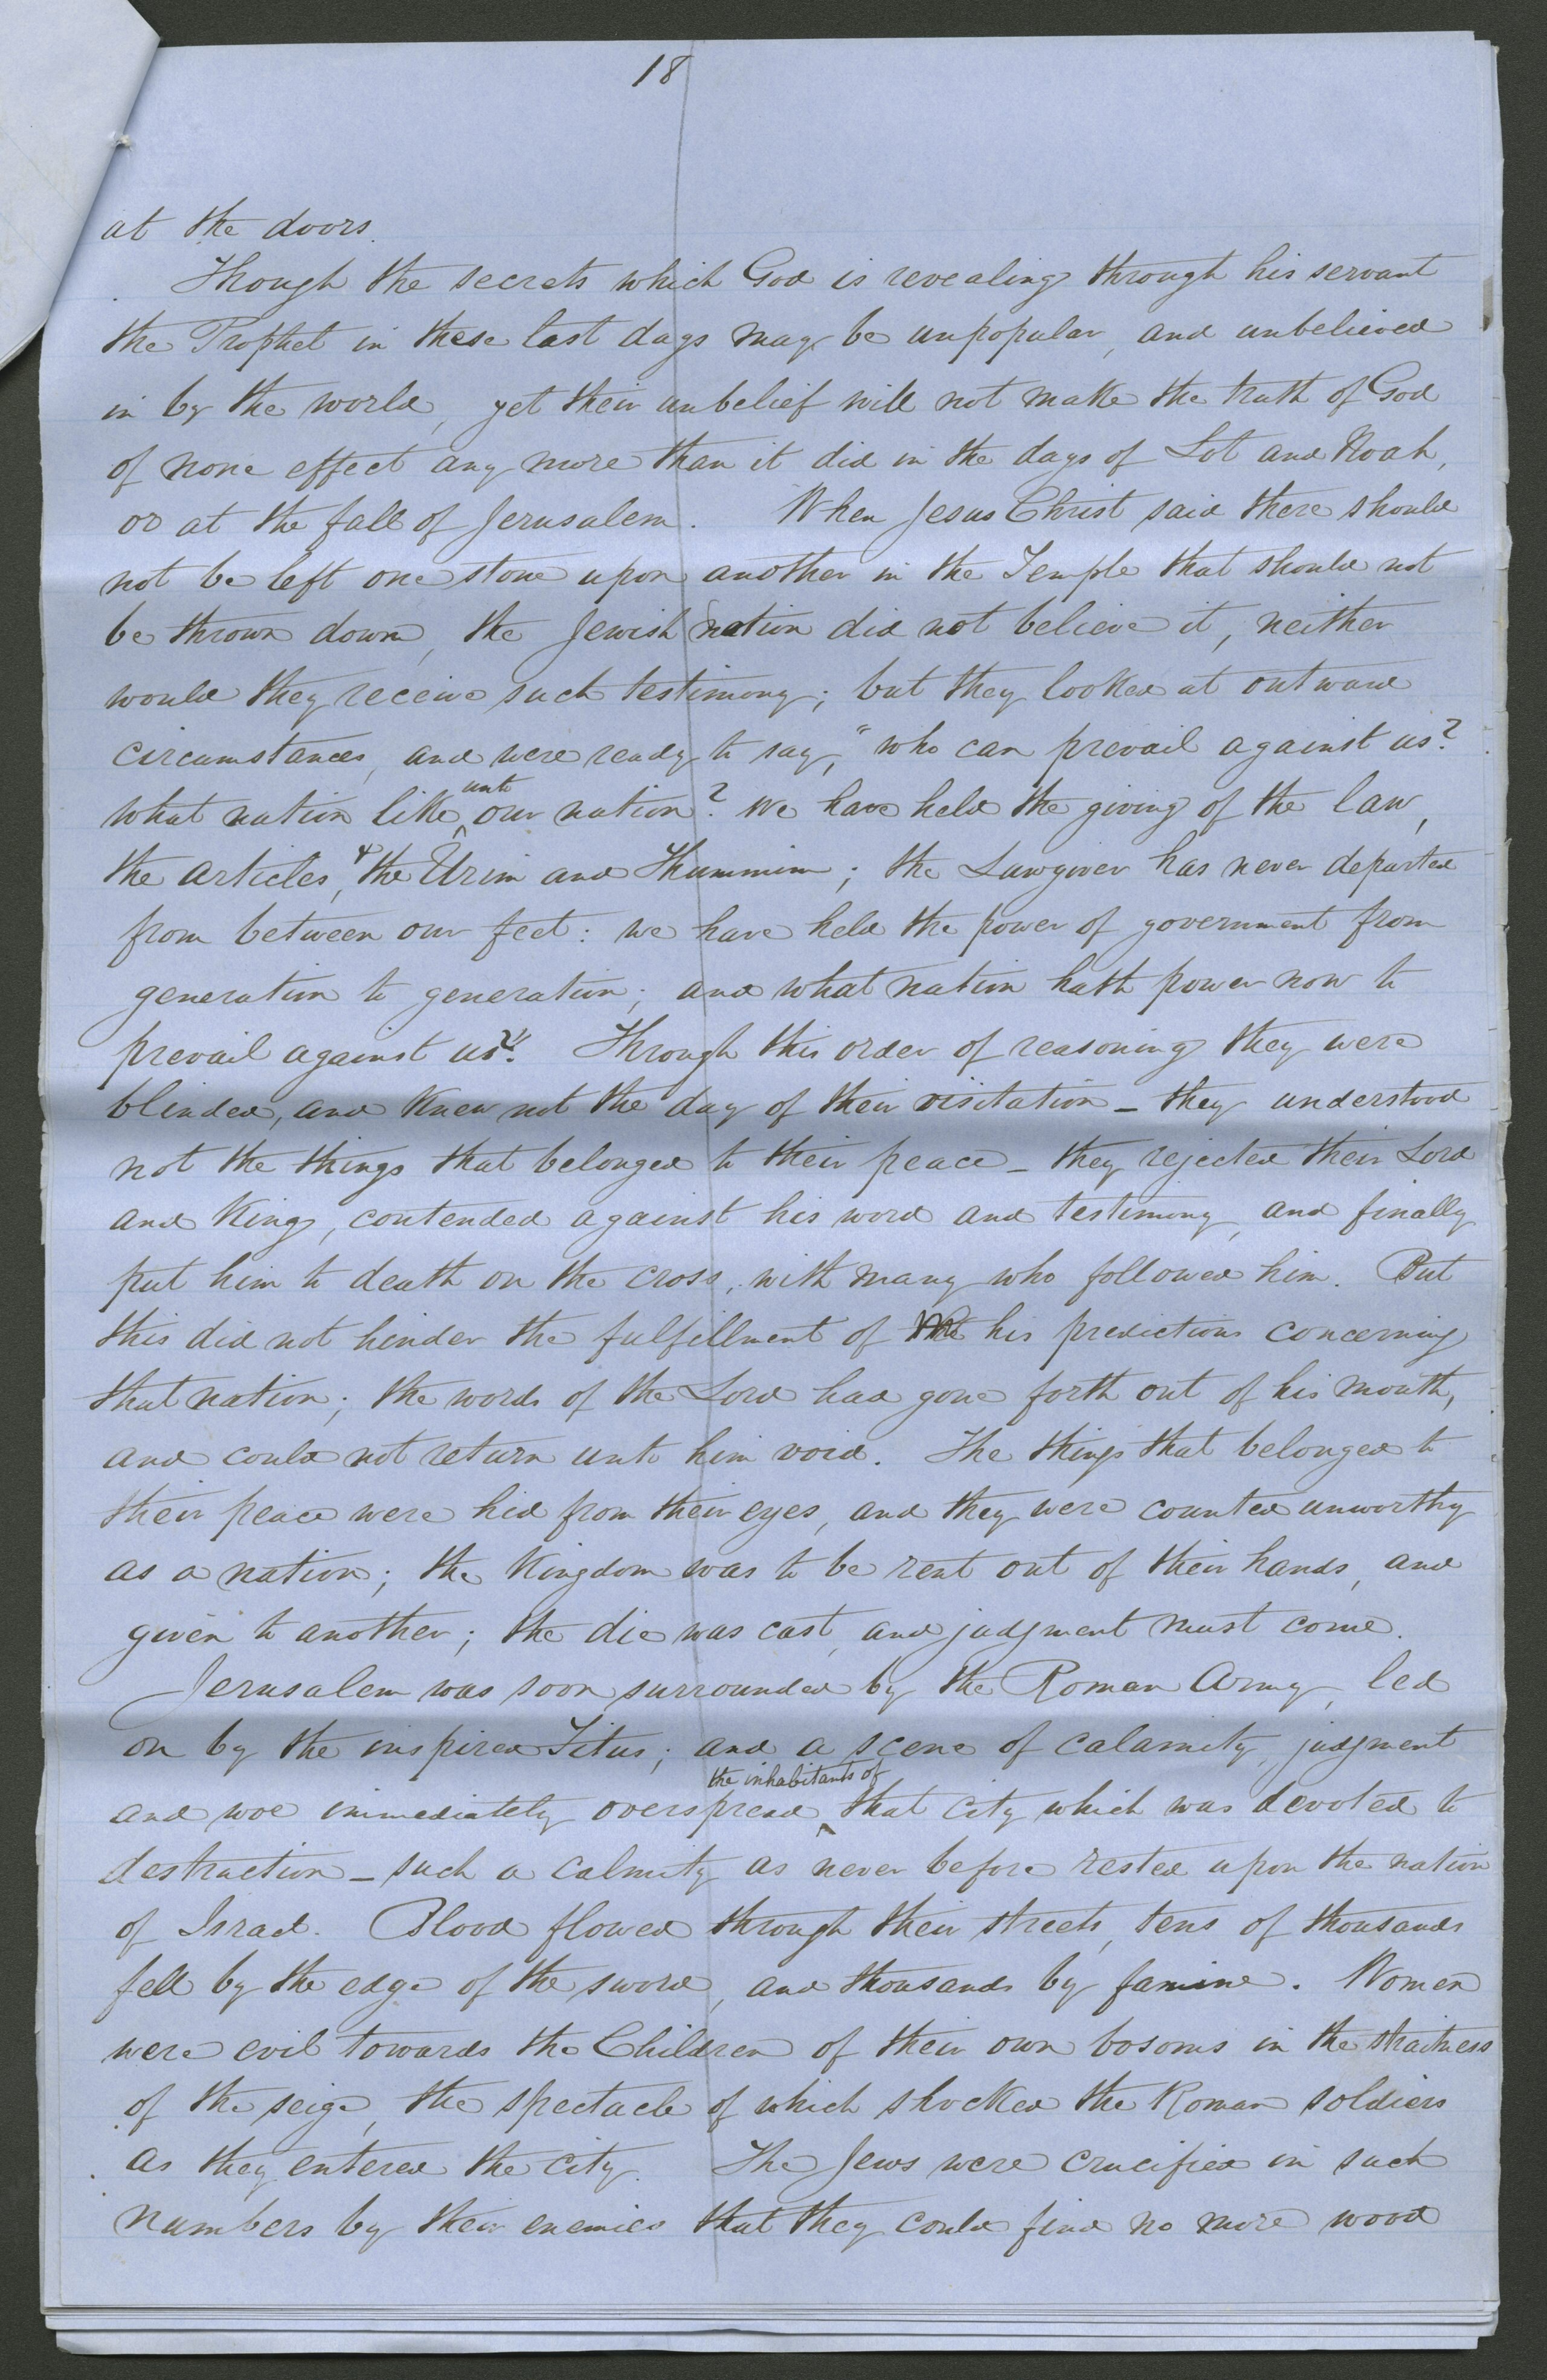 18
at the doors.
Though the secrets which God is revealing through his servant
the Prophet in these last days may be unpopular, and unbelieved
in by the world, yet their unbelief will not make the truth of God
of none effect any more than it did in the days of Lot and Noah,
or at the fall of Jerusalem. When Jesus Christ said there should
not be left one stone upon another in the Temple that should not
be thrown down, the Jewish nation did not believe it, neither
would they receive such testimony; but they looked at outward
circumstances, and were ready to say, "who can prevail against us?
unto
what nation like our nation? We have held the giving of the law,
the articles, & the Urim and Thummim; the Lawgiver has never departed
from between our feet: we have held the power of government from
generation to generation; and what nation hath power now to
prevail against us?" Through this order of reasoning they were
blinded, and knew not the day of their visitation – they understood
not the things that belonged to their peace – they rejected their Lord
and King, contended against his word and testimony, and finally
put him to death on the cross, with many who followed him. But
this did not hinder the fulfillment of his predictions concerning
that nation; the words of the Lord had gone forth out of his mouth,
and could not return unto him void. The things that belonged to
their peace were hid from their eyes, and they were counted unworthy
as a nation; the Kingdom was to be rent out of their hands, and
given to another; the die was cast, and judgment must come.
Jerusalem was soon surrounded by the Roman Army, led
on by the inspired Titus; and a scene of calamity, judgment
the inhabitants of
and woe immediately overspread that city which was devoted to
destruction – such a calmity as never before rested upon the nation
of Israel. Blood flowed through their streets, tens of thousands
fell by the edge of the sword, and thousands by famine. Women
were evil towards the Children of their own bosoms in the straitness
of the seige, the spectacle of which shocked the Roman soldiers
as they entered the city. The Jews were crucified in such
numbers by their enemies that they could find no more wood